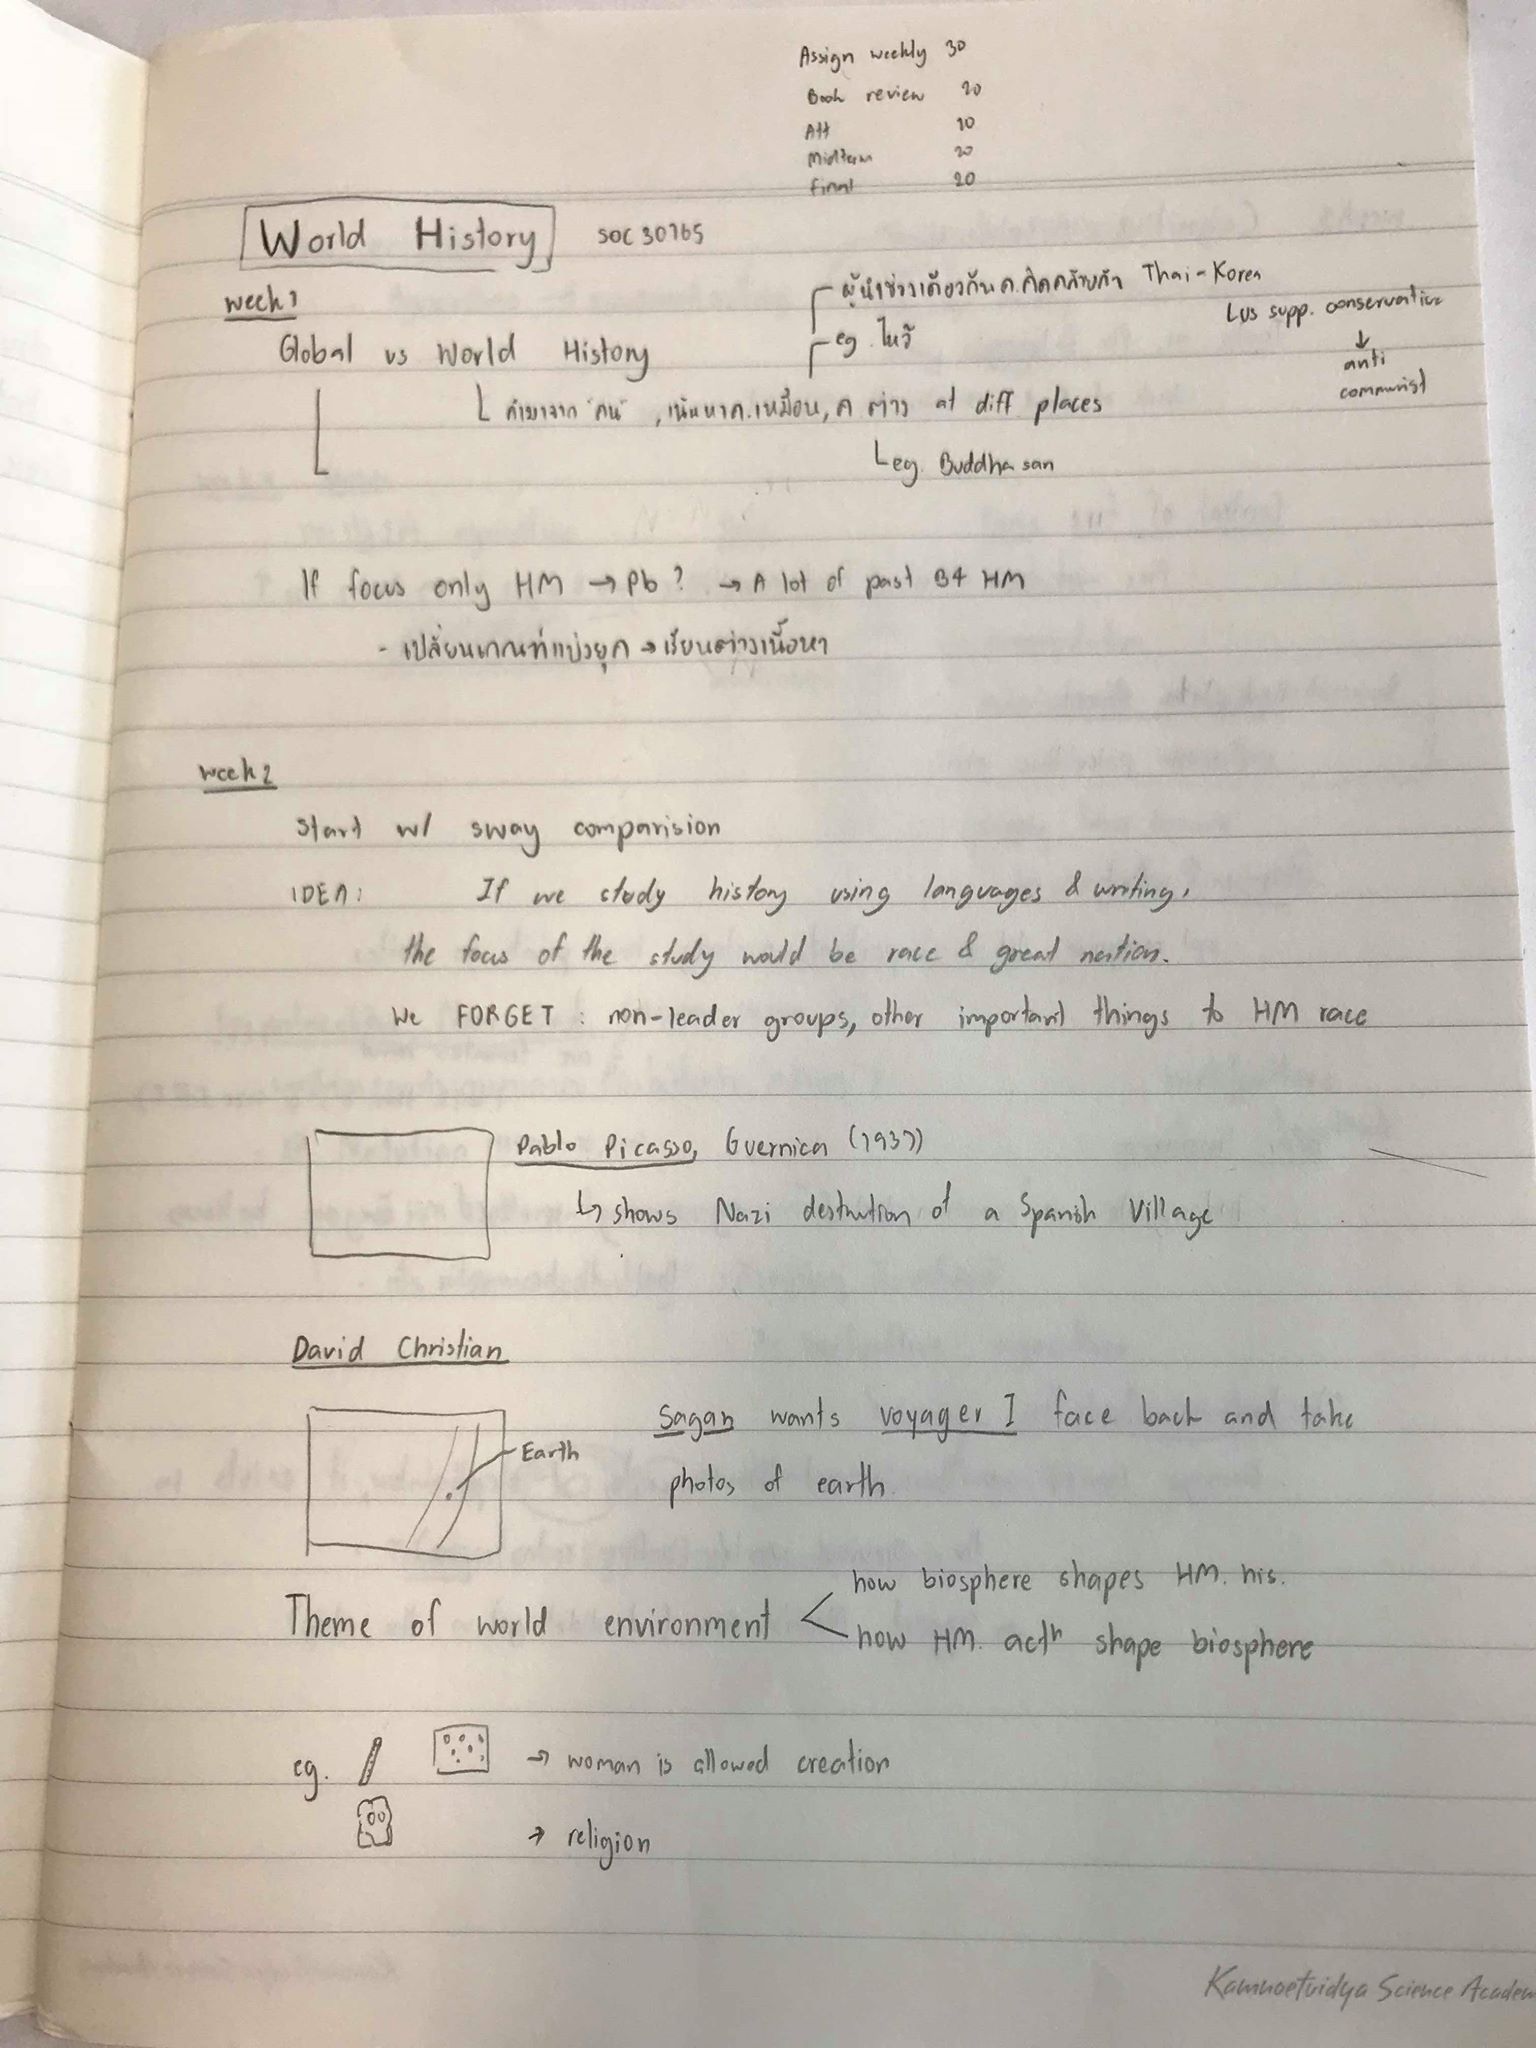 Assign weekly 30
Book review 20
Att 10
Midterm 20
Final 20
World History SOC 30165
week1
ผู้นำช่วงเดียวกันค.คิดคล้ายกัน Thai-Korea
LUS supp. conservative
↓
anti
communist
eg. ไหว้
Global vs World History
"คน", เน้นหาค.เหมือน, ค ต่าง at diff places
eg. Buddha san
If focus only HM → Pb? → A lot of past B4 HM
- เปลี่ยนเกณฑ์แบ่งยุค → เรียนต่างเนื้อหา
week2
Start w/ sway comparision
IDEA: If we study history using languages & writing,
the focus of the study would be race & great nation.
We FORGET: non-leader groups, other important things to HM race
Pablo Picasso, Guernica (1937)
↳ shows Nazi destrution of a Spanish Village
David Christian
Earth
Sagan wants voyager I face back and take
photos of earth.
how biosphere shapes HM. his.
Theme of world environment
how HM. actⁿ shape biosphere
eg. → woman is allowed creation
→ religion
Kamnoetvidya Science Academ